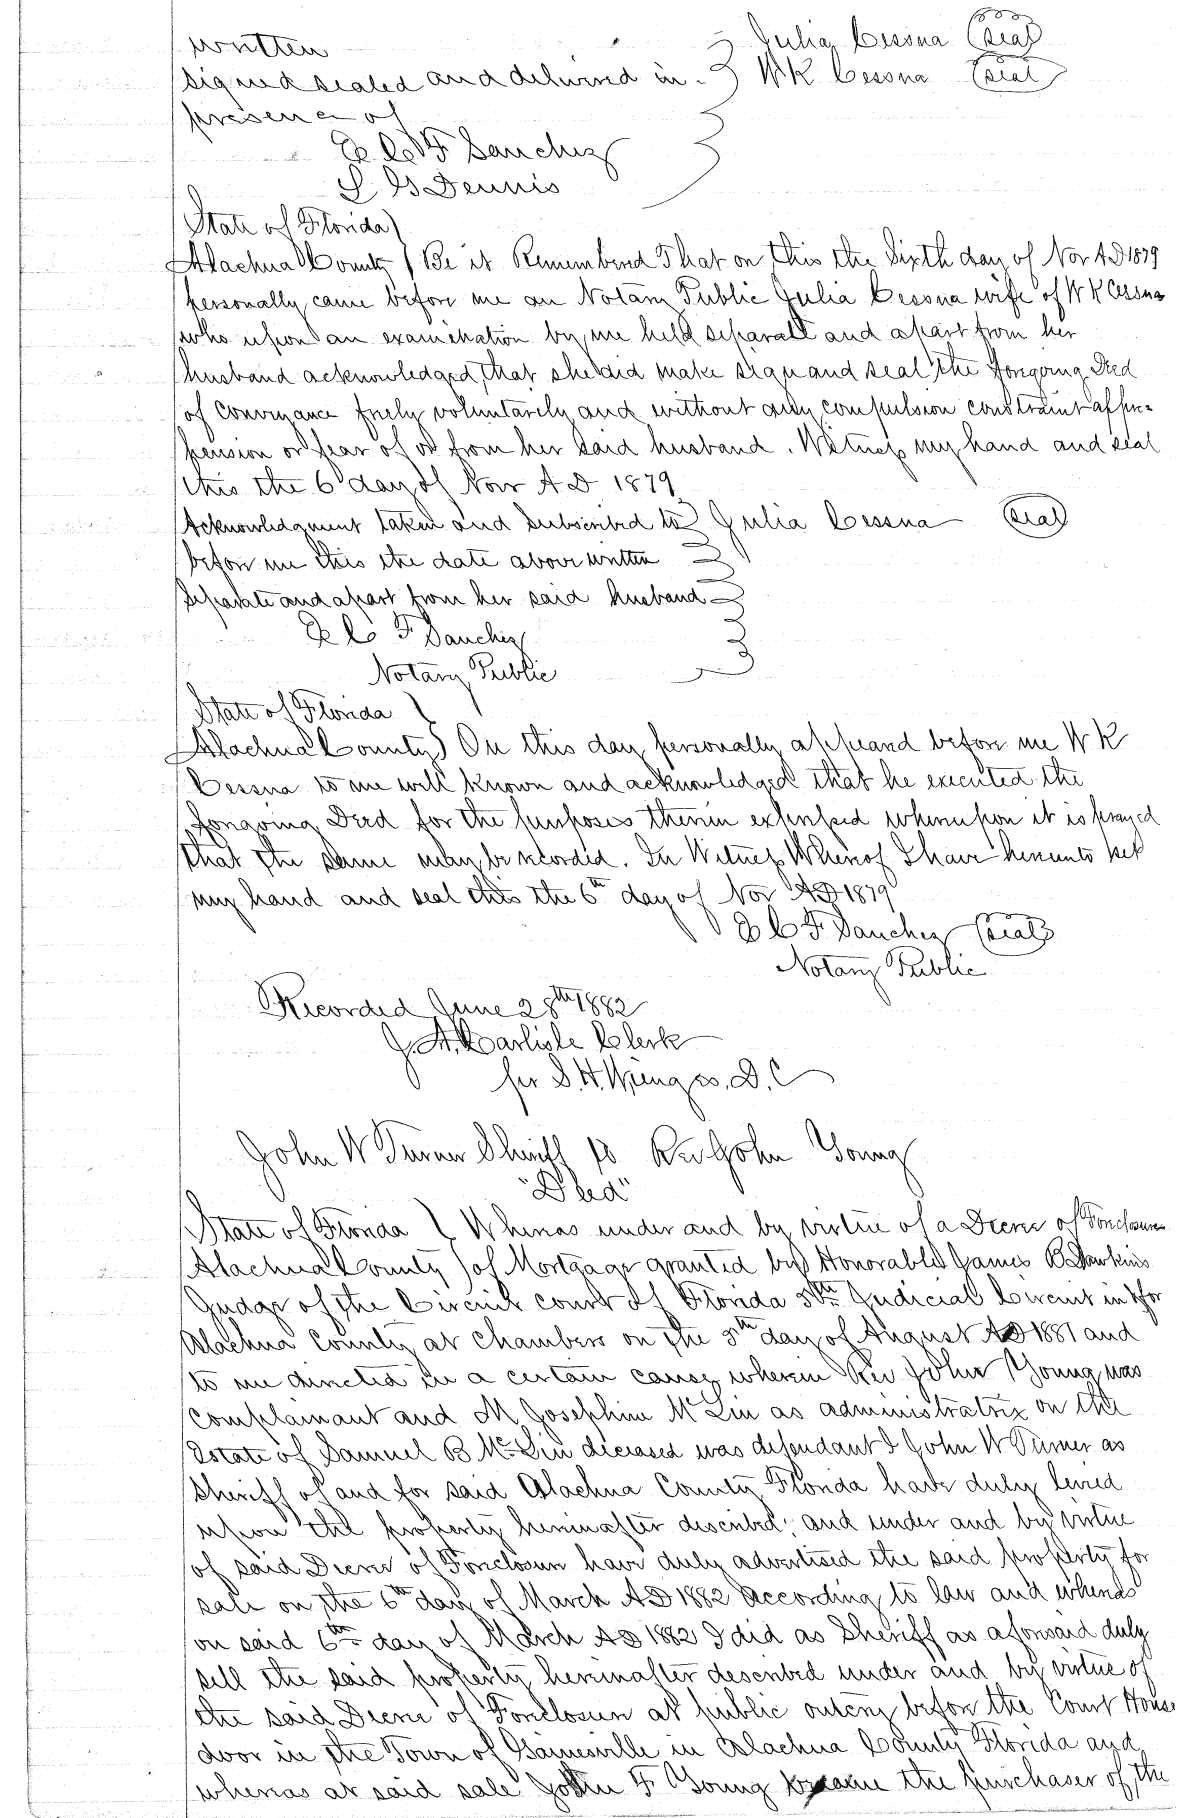 written
Julia Cessna (seal)
signed sealed and delivered in W K Cessna (seal)
presence of
E C F Sanchez
L G Dennis
State of Florida
Alachua County Be it Remembered That on this the Sixth day of Nov A D 1879
personally came before me an Notary Public Julia Cessna wife of W K Cessna
who upon an examination by me held separate and apart from her
husband acknowledged that she did make sign and seal the foregoing Deed
of Conveyance freely voluntarily and without any compulsion constraint appre=
hension or fear of or from her said husband. Witness my hand and seal
this the 6 day of Nov A D 1879
Acknowledgment taken and Subscribed to Julia Cessna (seal)
before me this the date above written
Separate and apart from her said husband
E C F Sanchez
Notary Public
State of Florida
Alachua County On this day personally appeared before me W K
Cessna to me well known and acknowledged that he executed the
foregoing Deed for the purposes therein expressed whereupon it is prayed
that the same may be recorded. In Witness Whereof I have hereunto set
my hand and seal this the 6th day of Nov AD 1879
E C F Sanchez (seal)
Notary Public
Recorded June 28th 1882
J. A. Carlisle Clerk
per S. H. D. C
John W Turner Sheriff to Rev John Young
"Deed"
State of Florida Whereas under and by virtue of a Decree of Foreclosure
Alachua County of Mortgage granted by Honorable James B Dawkins
Judge of the Circuit court of Florida 5th Judicial Circuit in & for
Alachua County at Chambers on the 5th day of August AD 1881 and
to me directed in a certain cause wherein Rev John Young was
Complainant and M Josephine McLin as administratrix on the
Estate of Samuel B McLin deceased was defendant I John W Turner as
Sheriff of and for said Alachua County Florida have duly levied
upon the property hereinafter described; and under and by virtue
of said Decree of Foreclosure have duly advertised the said property for
sale on the 6th day of March AD 1882 According to law and whereas
on said 6th day of March AD 1882 I did as Sheriff as aforesaid duly
sell the said property hereinafter described under and by virtue of
the said Decree of Foreclosure at public outcry before the Court House
door in the Town of Gainesville in Alachua County Florida and
whereas at said sale John F Young became the purchaser of the